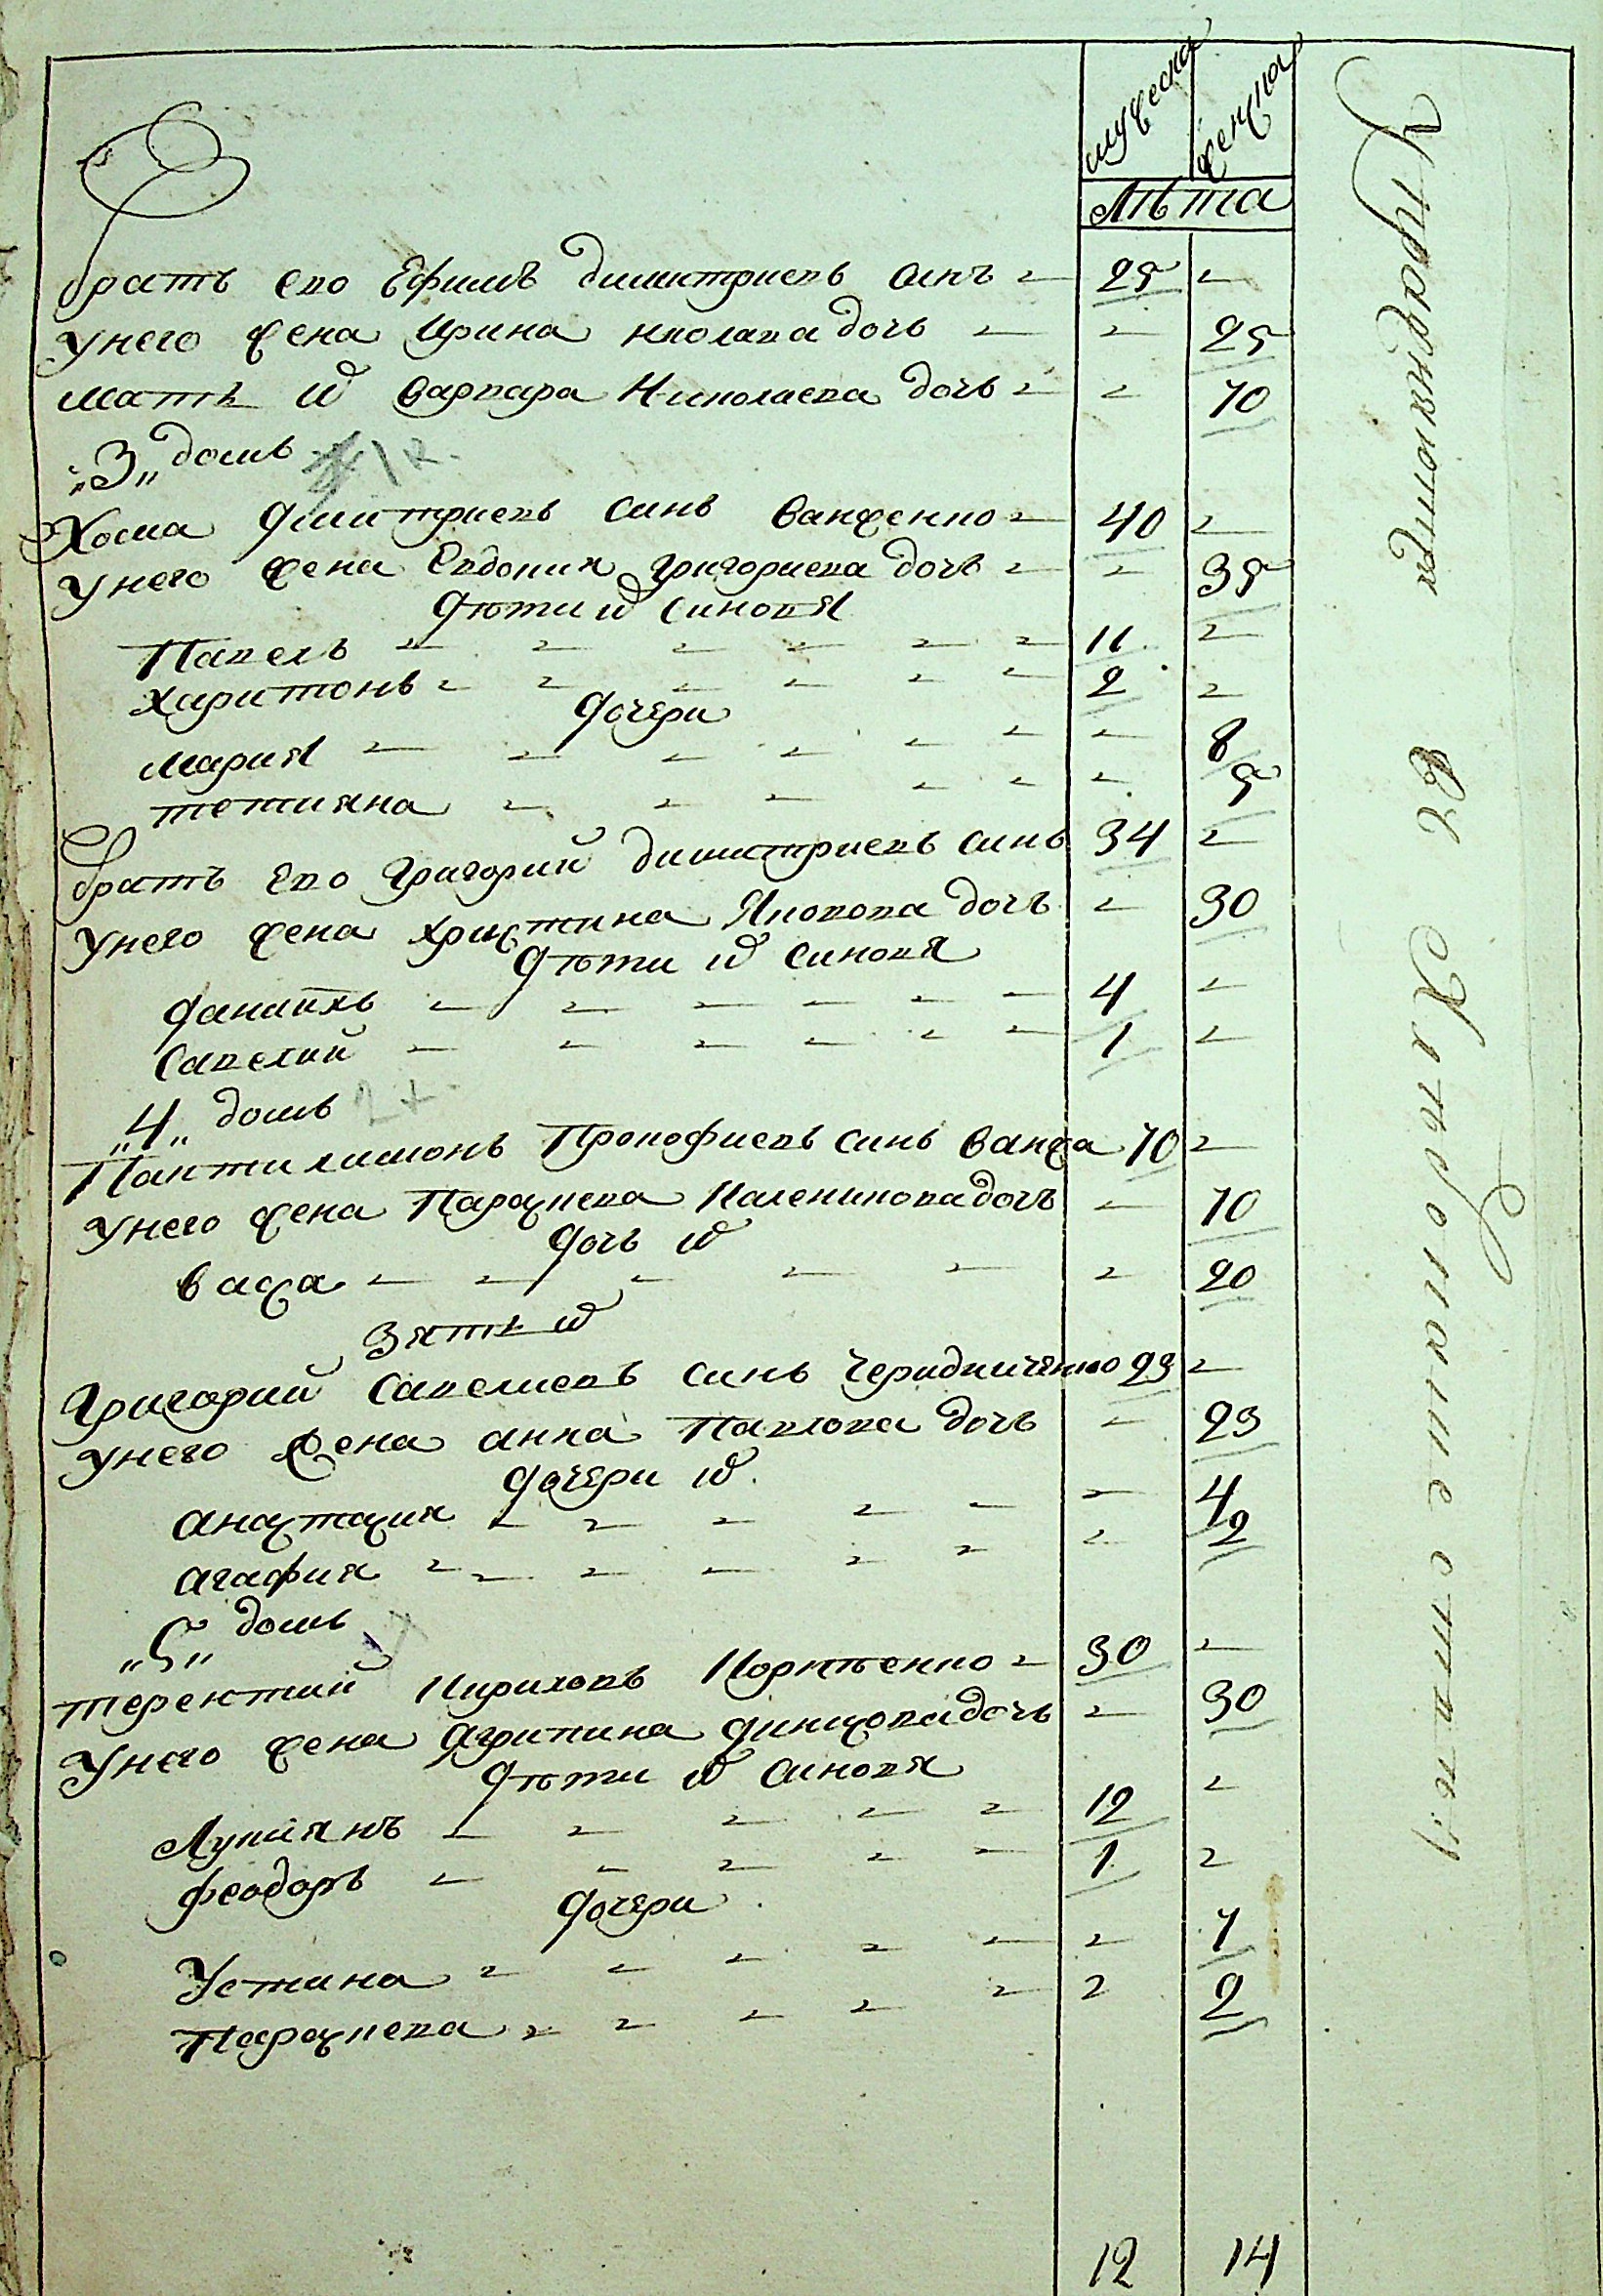 мужеска женска
лѣта
братъ его Ефимъ димитриевъ синъ 25
У него жена Ирина николаева дочь 25
мать и҃х Варвара Николаева дочь 70
„3„ домъ
Хома Дмитриевъ синъ Ванженко 40
У него жена Евдокия григориева дочь 35
Дѣти и҃х синовя
Павелъ 11
Харитонъ 2
Дочери
мария 8
тетияна 5
братъ Его Григорий димитриевъ синъ 34
У него жена христина Яковова дочь 30
Дѣти и҃х синовя
Даниилъ 4
Савелий 1
„4„ домъ
Пантилимонъ Прокофиевъ синъ Ванжа 70
У него жена Параскева Каленикова дочь 70
Дочь и҃х
Васса 20
Зять и҃х
Григорий Савелиевъ синъ Чередниченко 23
У него жена анна Павлова дочь 23
Дочери и҃х
анастасия 4
агафия 2
„5„ домъ
терентий Кириловъ Корнѣенко 30
У него жена Агрипина Дициова дочь 30
Дѣти и҃х синовя
Лукиянъ 12
Феодоръ 1
Дочери
Устина 7
Параскева 2
12 14